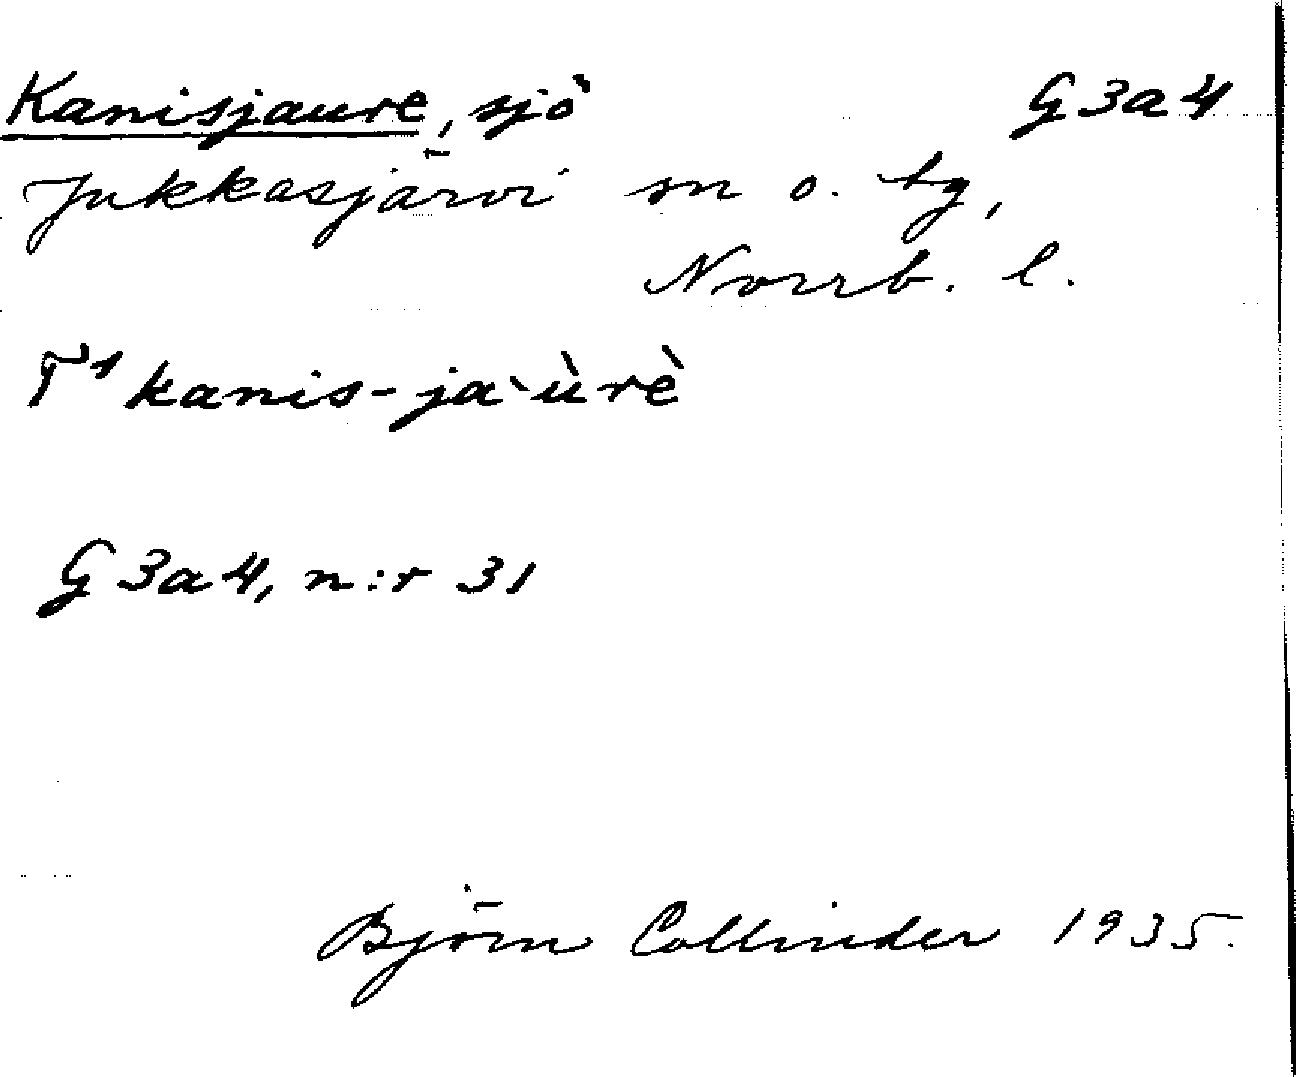 Kanisjaure, sjö G3a4
Jukkasjärvi sn o. tg,
Norrb. l.
T¹ kanis-ja`ùrè
G3a4, n:r 31
Björn Collinder 1935.